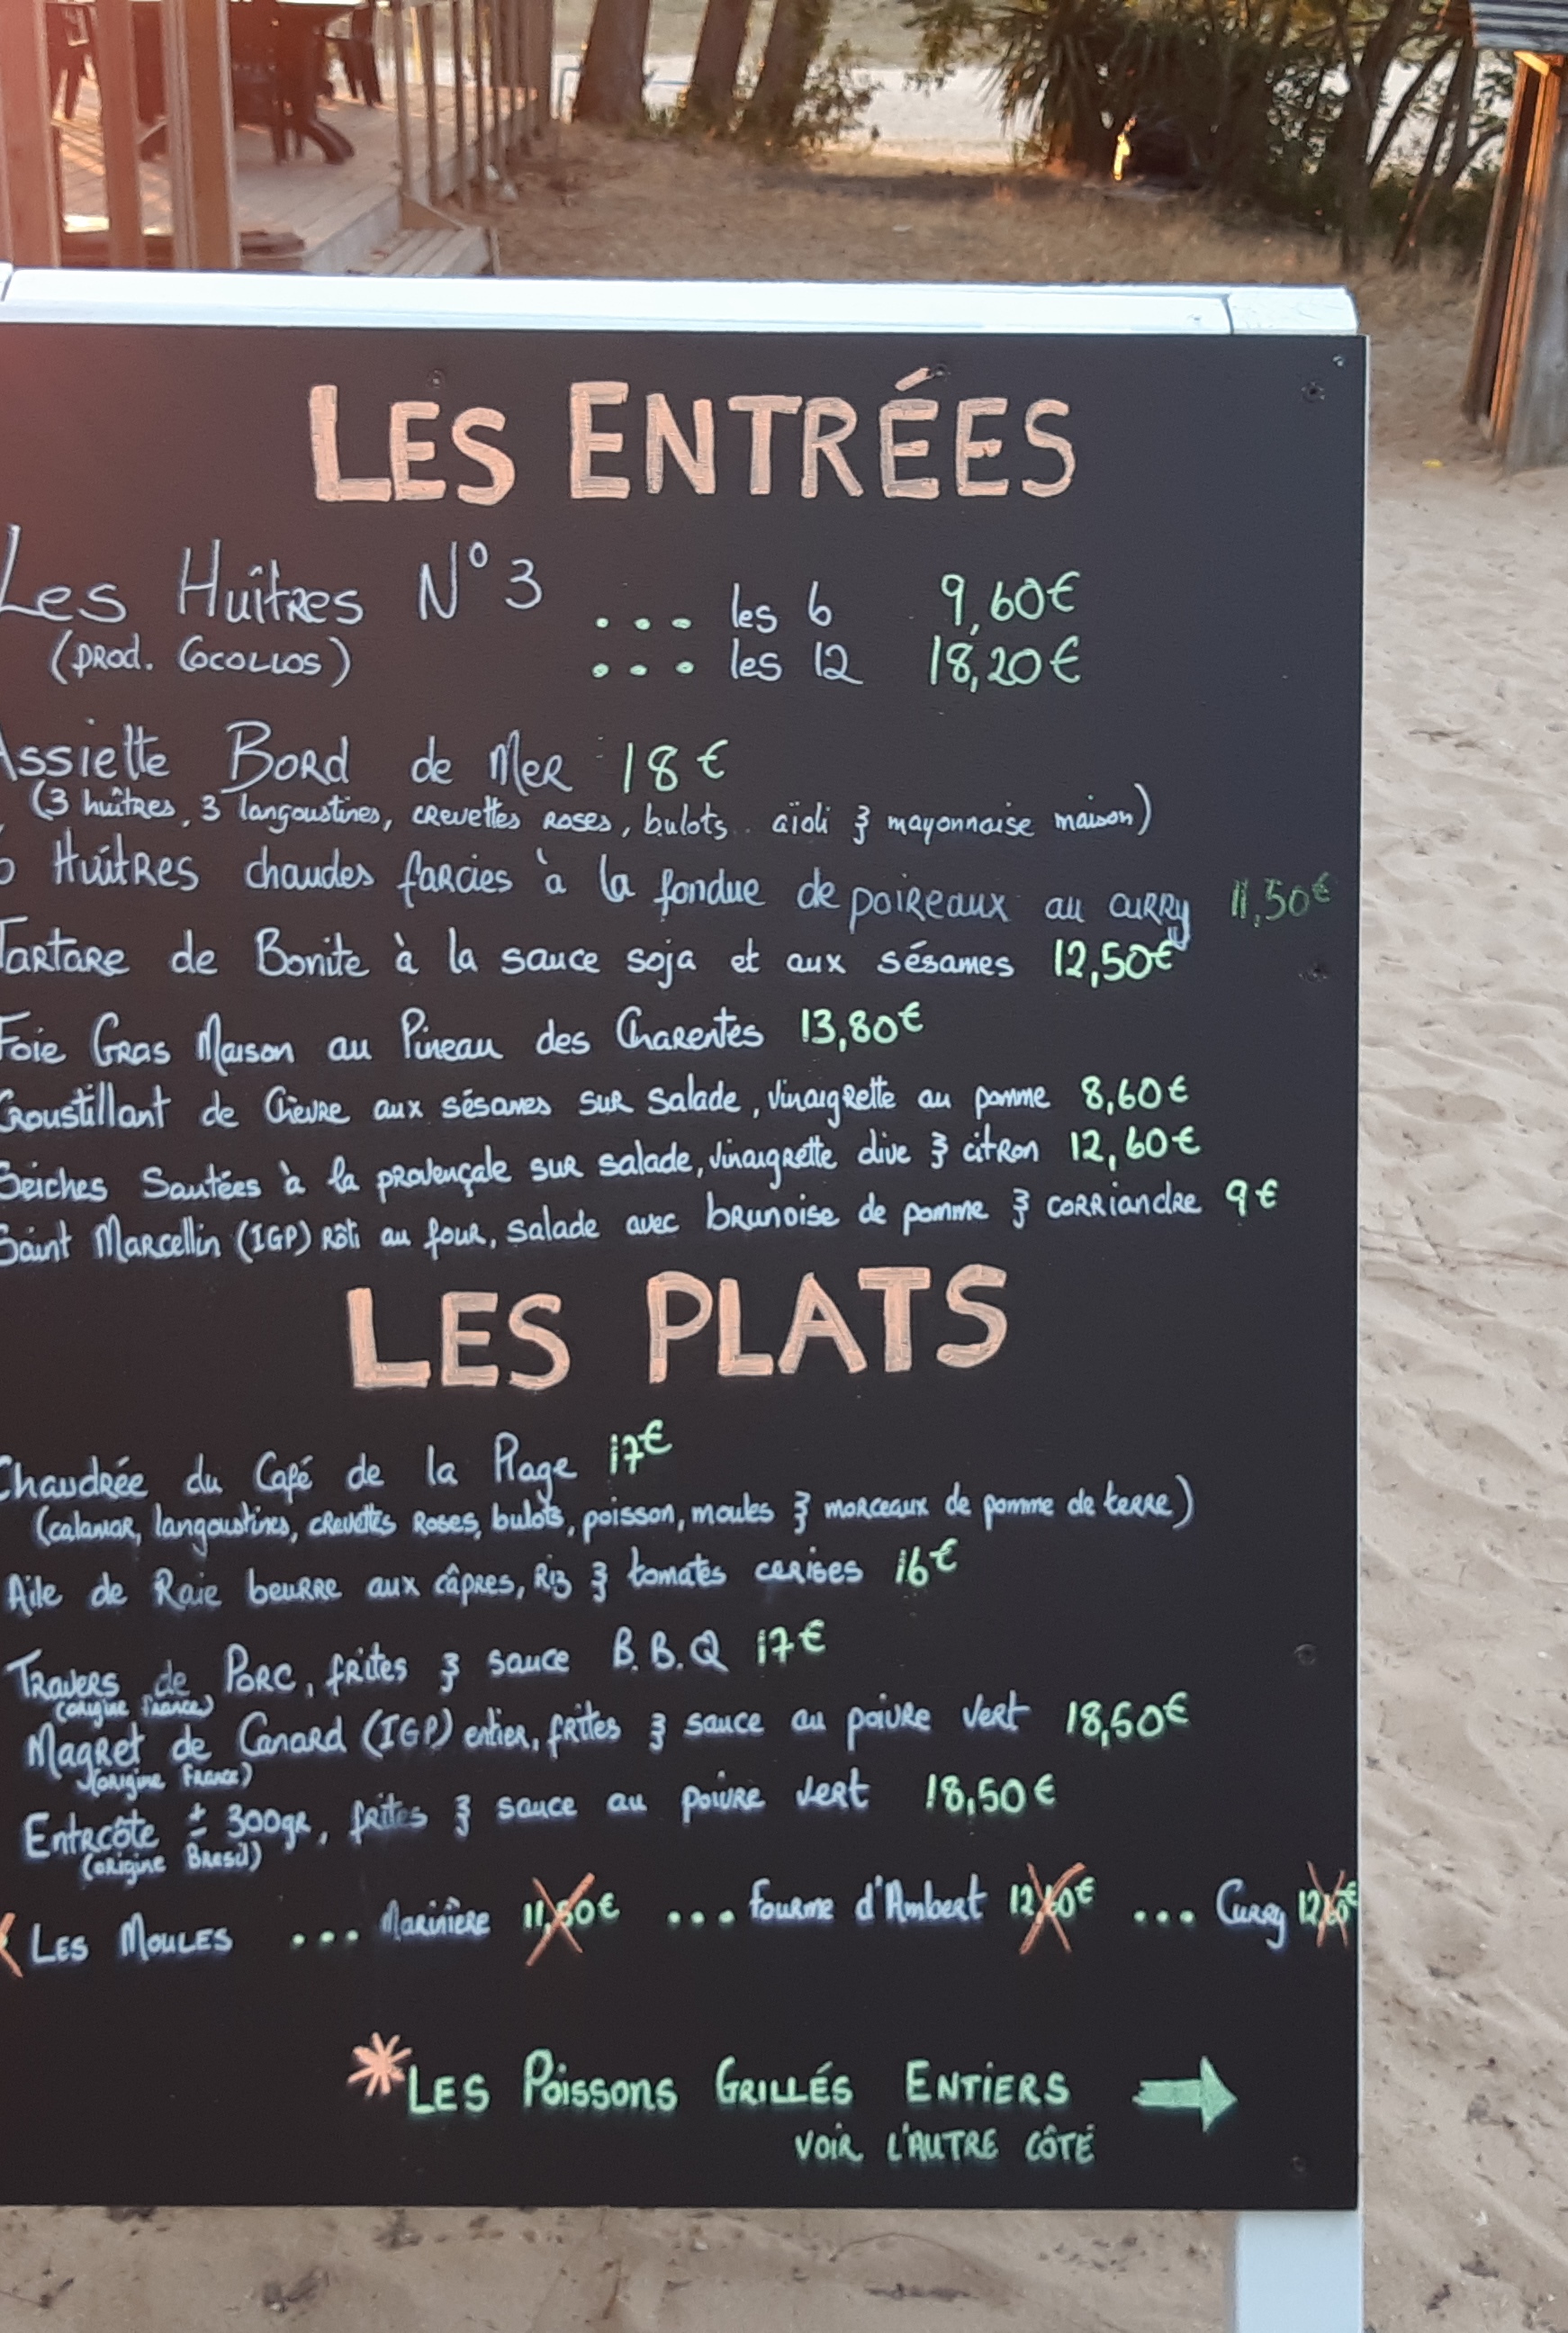 LES ENTRÉES
Les Huîtres N° 3 ... les 6 9,60€
(prod. Cocollos) ... les 12 18,20€
Assiette Bord de Mer 18€
(3 huîtres, 3 langoustines, crevettes roses, bulots.. aïoli & mayonnaise maison)
6 Huîtres chaudes farcies à la fondue de poireaux au curry 11,50€
Tartare de Bonite à la sauce soja et aux sésames 12,50€
Foie Gras Maison au Pineau des Charentes 13,80€
Croustillant de Chèvre aux sésames sur salade, vinaigrette au pomme 8,60€
Seiches Sautées à la provençale sur salade, vinaigrette olive & citron 12,60€
Saint Marcellin (IGP) rôti au four, salade avec brunoise de pomme & corriandre 9€
LES PLATS
Chaudrée du Café de la Plage 17€
(calamar, langoustines, crevettes roses, bulots, poisson, moules & morceaux de pomme de terre)
Aile de Raie beurre aux câpres, riz & tomates cerises 16€
Travers de Porc, frites & sauce B.B.Q 17€
(origine France)
Magret de Canard (IGP) entier, frites & sauce au poivre vert 18,50€
(origine France)
Entrcôte ± 300gr, frites & sauce au poivre vert 18,50€
(origine Brésil)
Les Moules ... Marinière 11,80€ ... Fourme d'Ambert 12,60€ ... Curry 12,60€
*LES POISSONS GRILLÉS ENTIERS →
VOIR L'AUTRE CÔTÉ